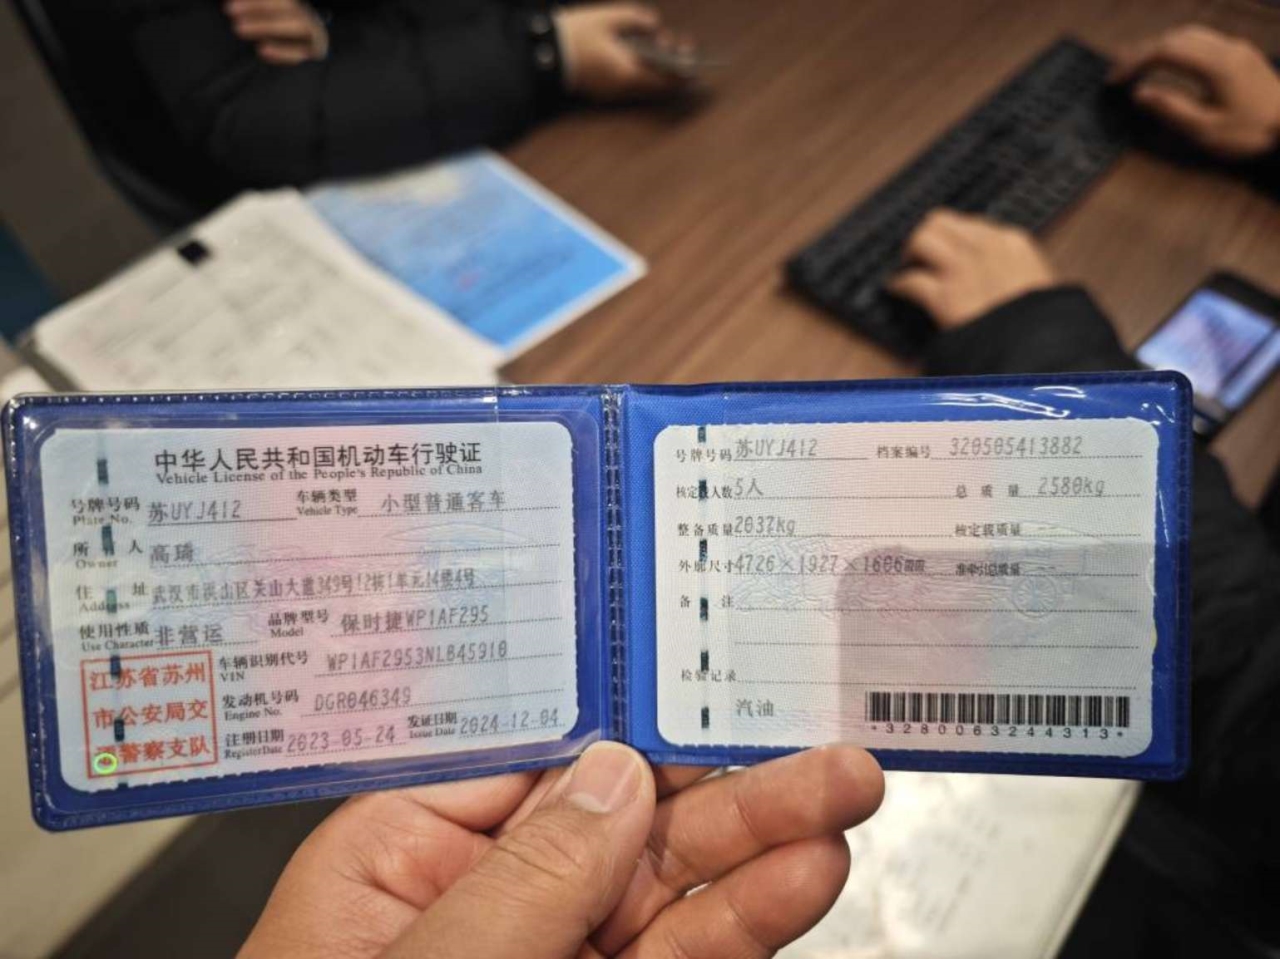 中华人民共和国机动车行驶证
Vehicle License of the People's Republic of China
号牌号码 苏UYJ412 车辆类型 小型普通客车
Plate No. Vehicle Type
所 人
Owner
住 址 武汉市洪山区关山大道349号12栋1单元14楼4号
Address
使用性质 非营运 品牌型号 保时捷WP1AF295
Use Character Model
车辆识别代号 WP1AF2953NLB45910
VIN
发动机号码 DGR046349
Engine No.
注册日期 2023-05-24 发证日期 2024-12-04
Register Date Issue Date
江苏省苏州
市公安局交
警察支队
号牌号码 苏UYJ412 档案编号 320505413882
核定载人数 5人 总质量 2580kg
整备质量 2032kg 核定载质量 --
外廓尺寸 4726×1927×1606mm 准牵引总质量 --
备 注
检验记录
汽油
*3280063244313*